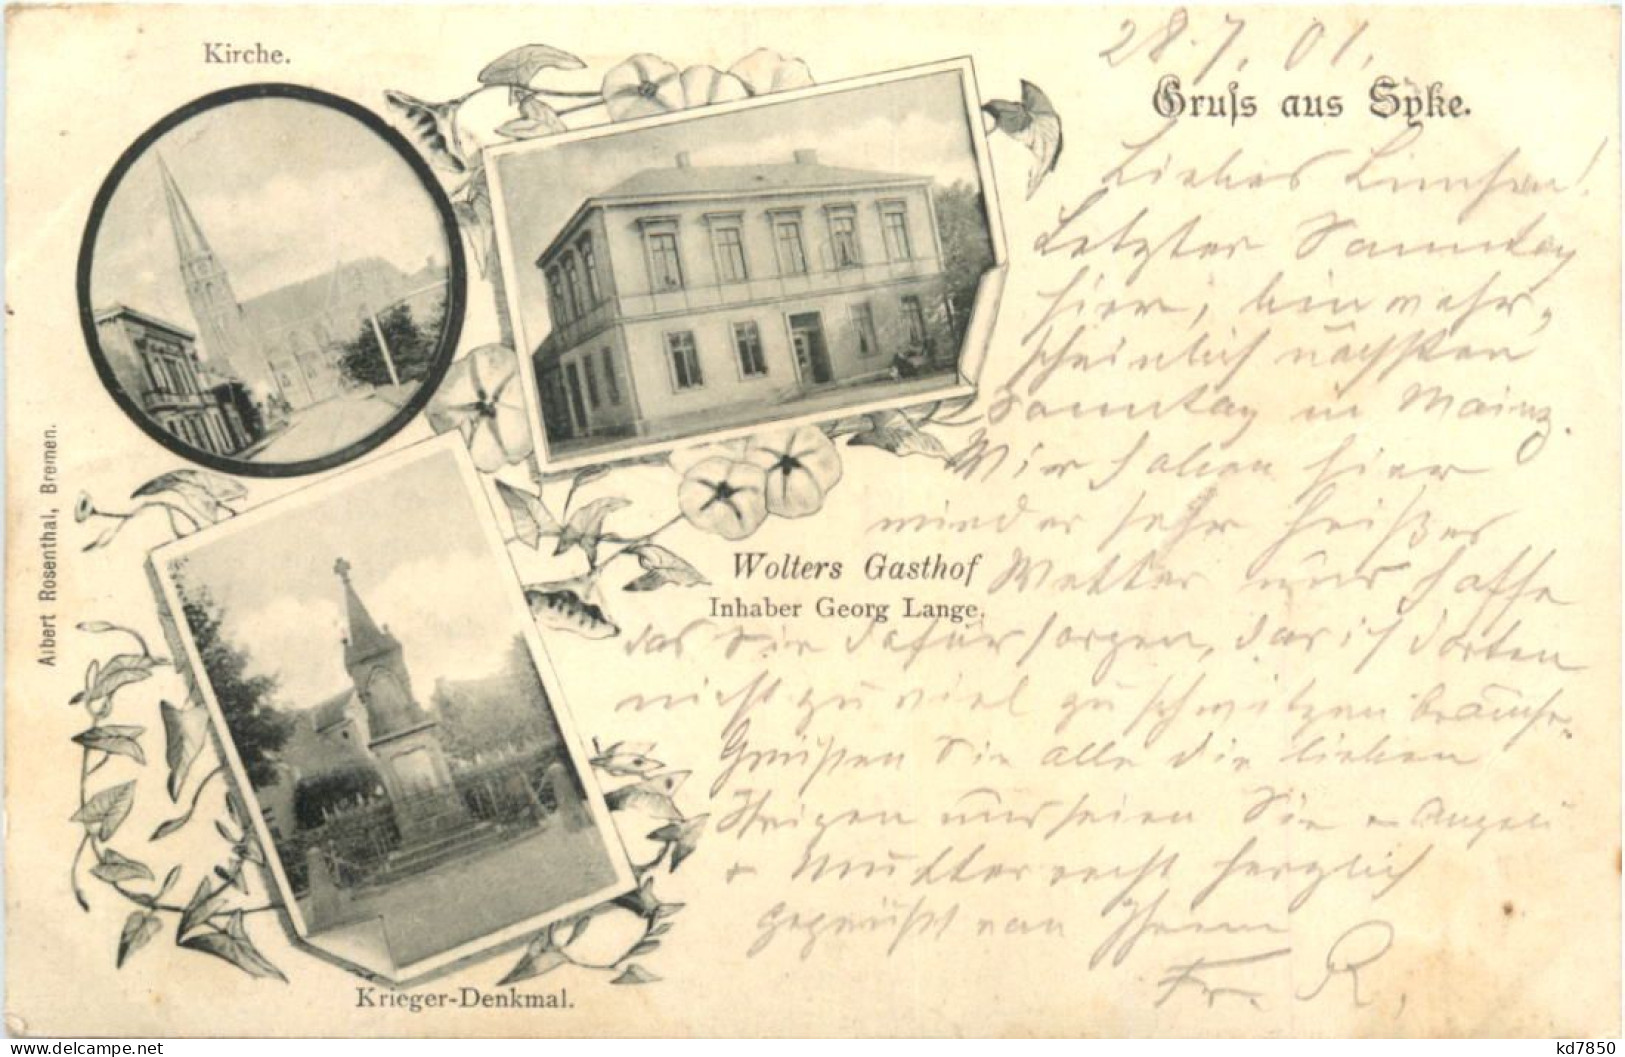 Kirche.
28.7.01.
Gruſs aus Syke.
Liebes
Letzter Sonntag
hier, bin wahr-
scheinlich nächsten
Sonntag in Mainz.
Wir haben hier
wieder sehr heißes
Wolters Gasthof
Wetter u. hoffe
Inhaber Georg Lange.
das Sie dafür sorgen, das ich dorten
nicht zu viel zu schwitzen brauche.
Grüßen Sie alle die lieben
Sie
+ Mutter recht herzlich
gegrüßt von Ihrem
Fr. R.
Krieger-Denkmal.
Albert Rosenthal, Bremen.
www.delcampe.net
kd7850